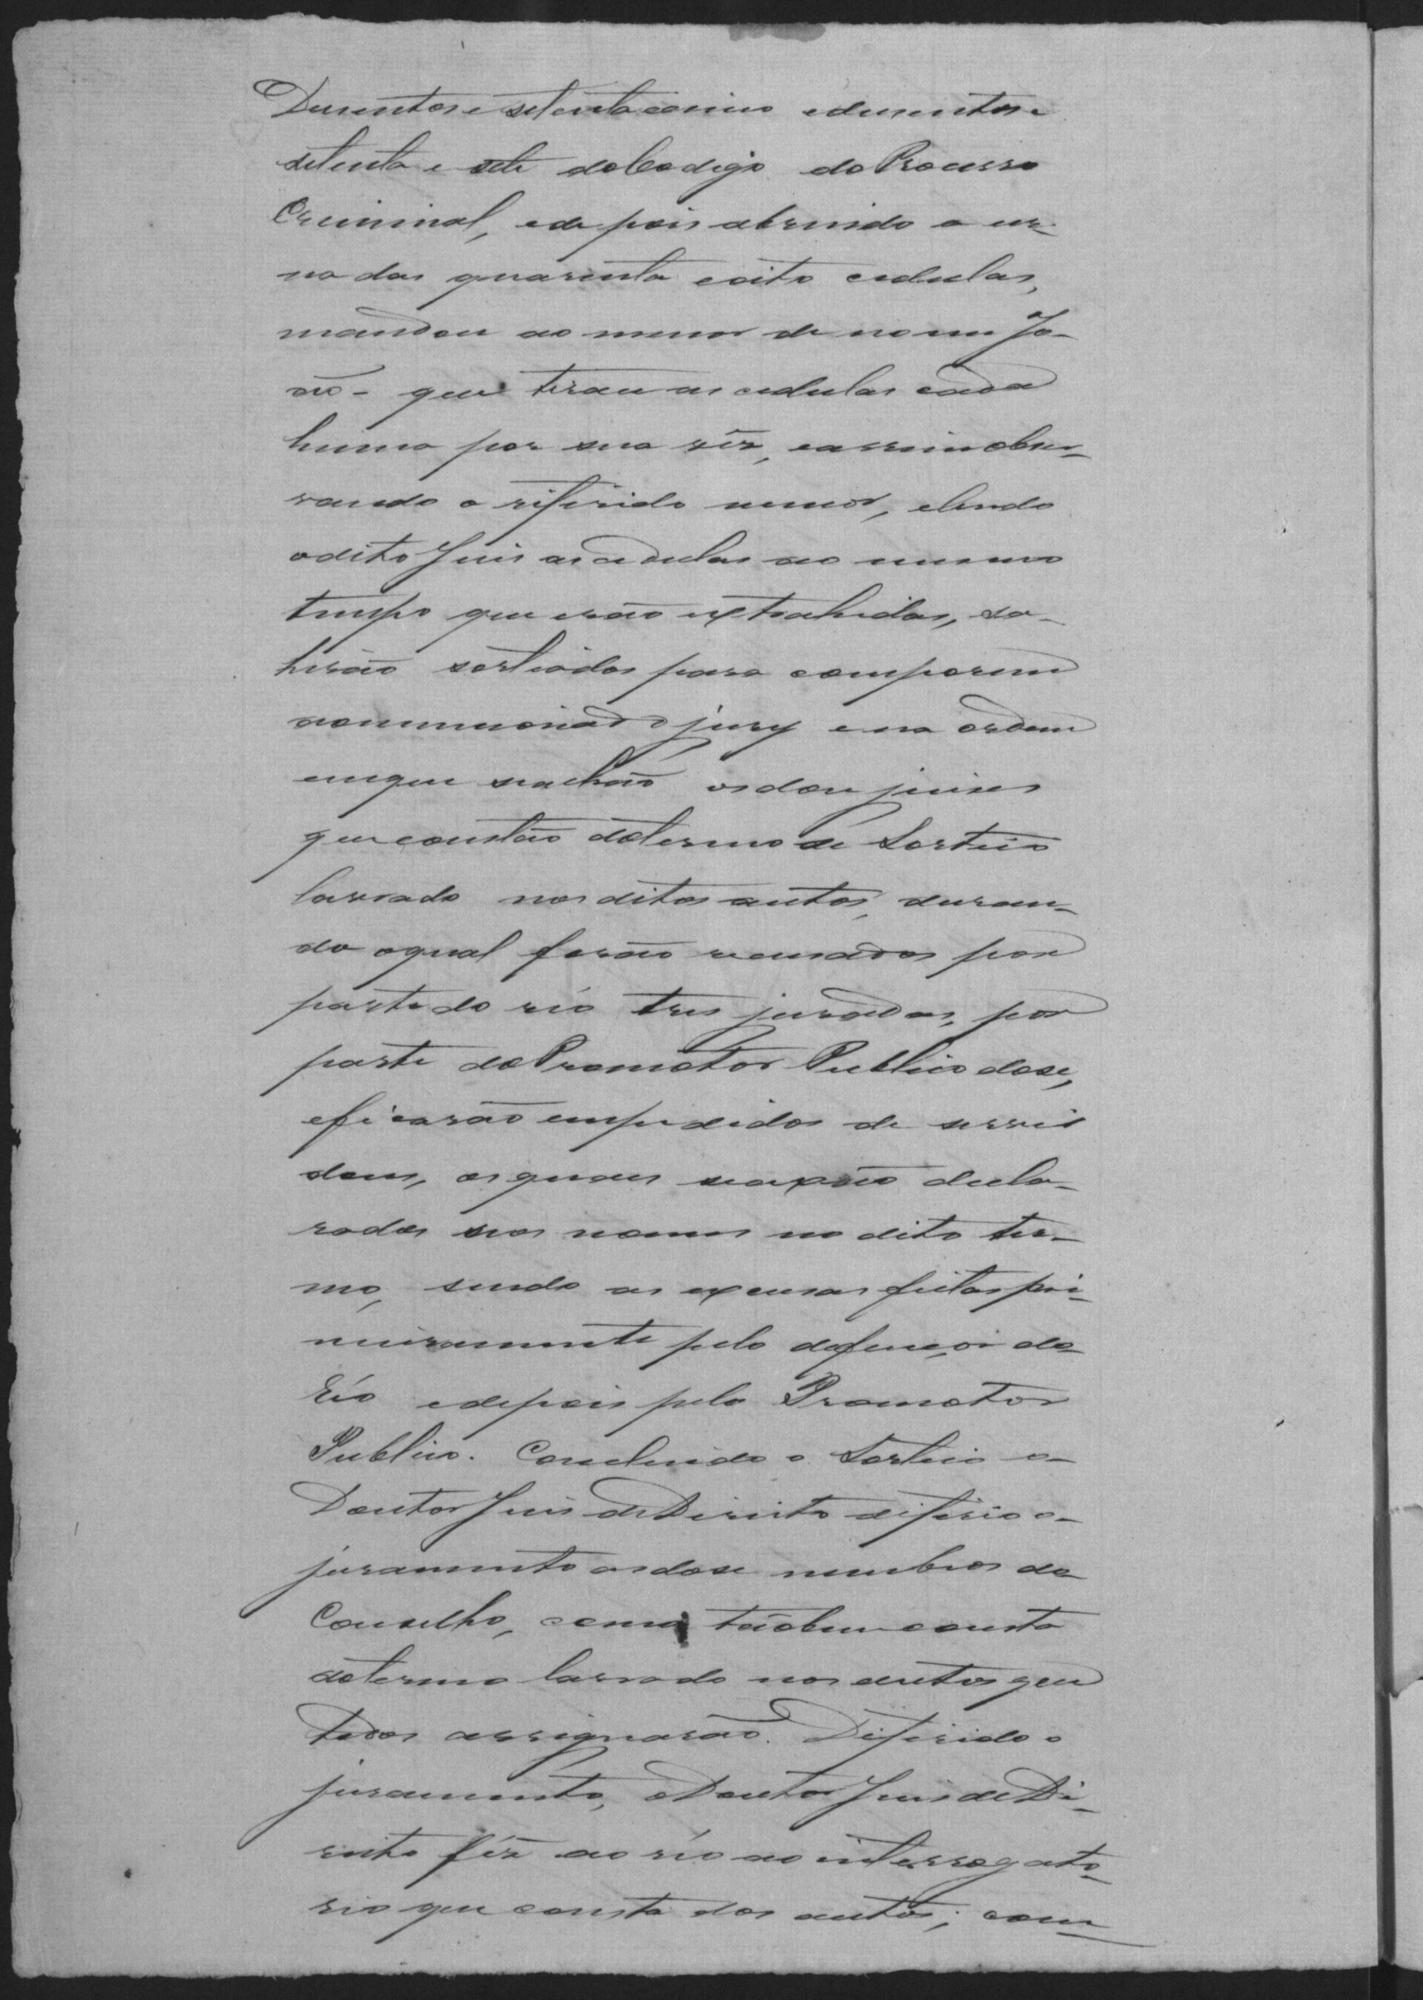 Dusentos e setenta e cinco e dusentos e
setenta e sete do Codigo do Processo
Criminal, e depois abrindo a ur-
na das quarenta e oito cedulas,
mandou ao menor de nome Jo-
ão - que tirasse as cedulas cada
huma por sua vêz, e assim obser-
vando o referido menor, e lendo
o dito Juis as cedulas ao mesmo
tempo que erão extrahidas, sa-
hirão sorteados para comporem
o mencionado jury e na ordem
em que se achão os dose juises
que constão do termo de Sorteio
lavrado nos ditos autos, duran-
do o qual forão recusados por
parte do réo tres jurados, por
parte do Promotor Publico dose,
e ficarão empedidos de servir
dous, os quaes se achão decla-
rados seos nomes no dito ter-
mo, sendo as excusas feitas pri-
meiramente pelo defençor do
Réo e depois pelo Promotor
Publico. Concluido o Sorteio o
Doutor Juis de Direito diferio o
juramento aos dose membros do
Conselho, como tãobem consta
do termo lavrado nos autos que
todos assignarão. Diferido o
juramento, o Doutor Juis de Di-
reito fêz ao réo ao interrogato-
rio que consta dos autos; com-